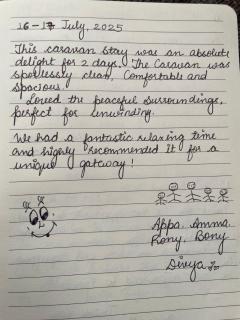 16-17 July, 2025
This caravan stay was an absolute
delight for 2 days. The Caravan was
spotlessly clean, Comfortable and
spacious.
Loved the peaceful surroundings,
perfect for unwinding.
We had a fantastic relaxing time
and highly recommended it for a
unique gateway!
Appa, Amma,
Rony, Bony
Divya